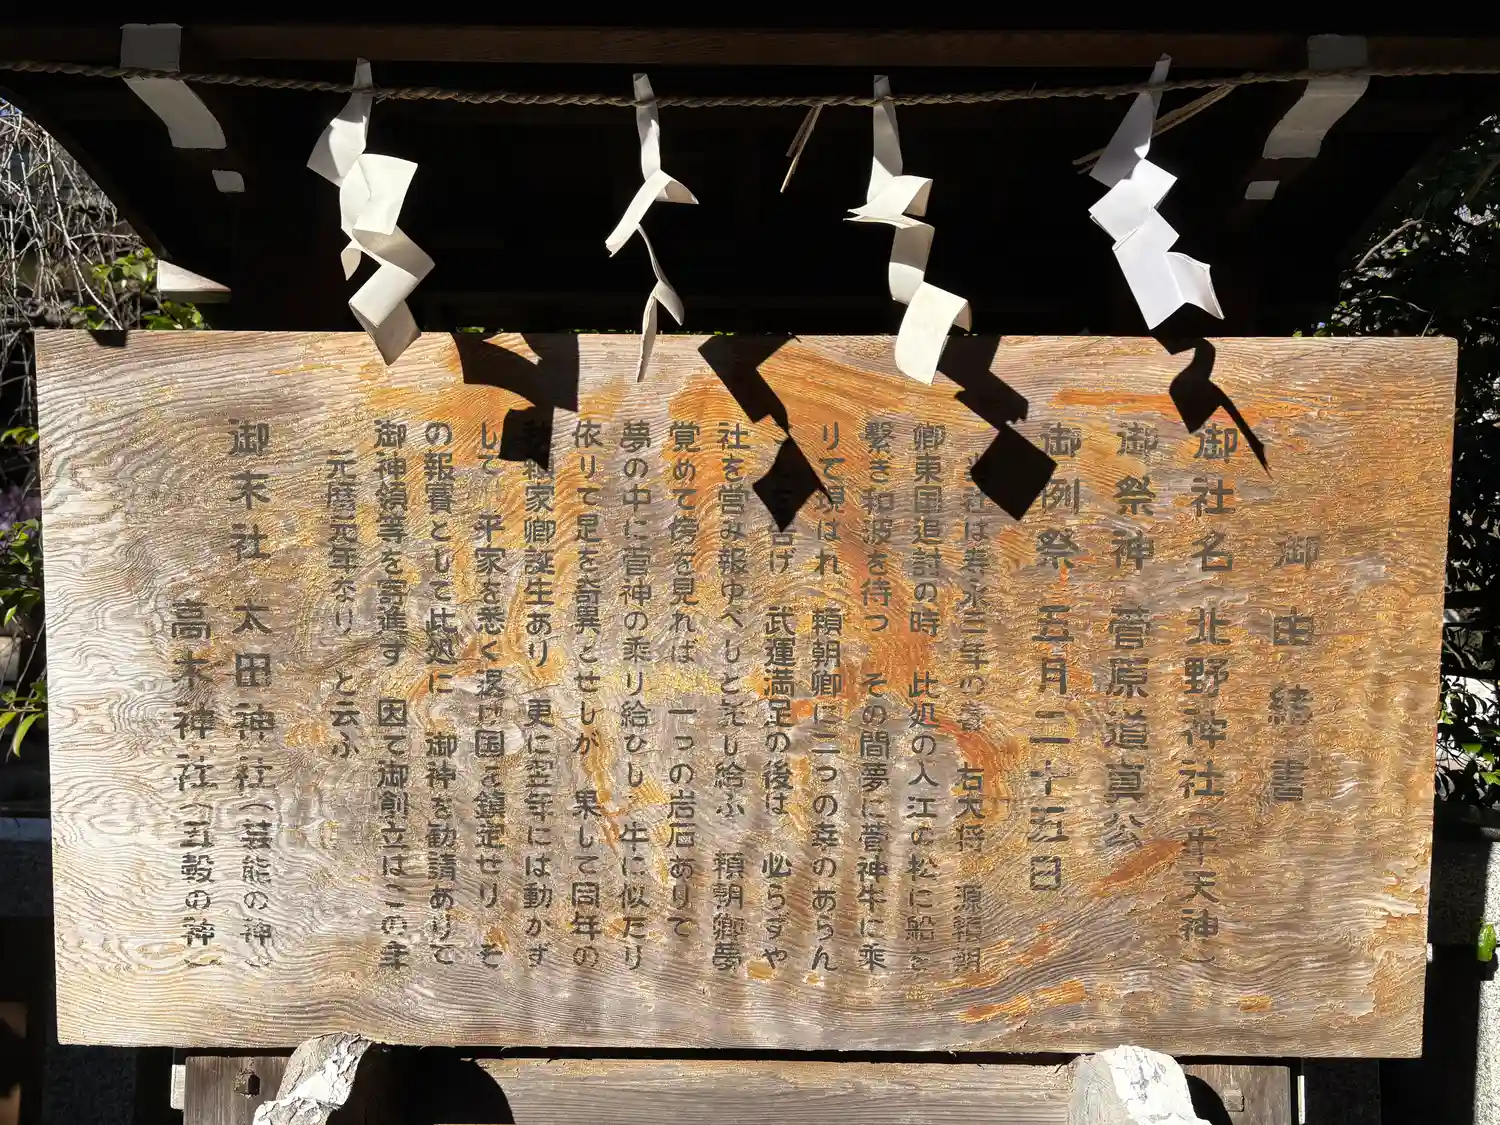 御由緒書
御社名 北野神社（牛天神）
御祭神 菅原道真公
御例祭 五月二十五日
社は寿永三年の 右大将 源頼朝
卿東国追討の時 此処の入江の松に船を
繋ぎ和波を待つ その間夢に菅神牛に乗
りて現はれ 頼朝卿に二つの幸のあらん
告げ 武運満足の後は 必らずや
社を営み報ゆべしと託し給ふ 頼朝卿夢
覚めて傍を見れば 一つの岩石ありて
夢の中に菅神の乗り給ひし 牛に似たり
依りて是を奇異とせしが 果して同年の
頼家卿誕生あり 更に翌年には動かず
して 平家を悉く退け国を鎮定せり そ
の報賽として此処に 御神を勧請ありて
御神領等を寄進す 因て御創立はこの年
元暦元年なり と云ふ
御末社 太田神社（芸能の神）
高木神社（五穀の神）